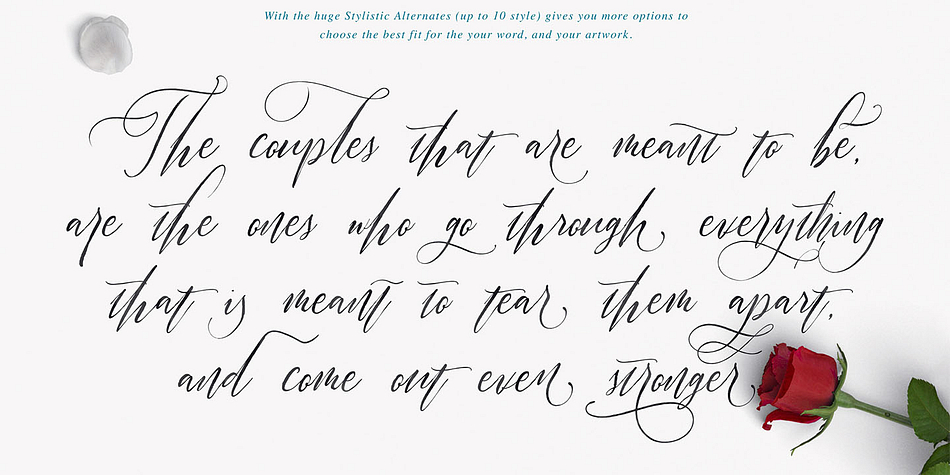 With the huge Stylistic Alternates (up to 10 style) gives you more options to
choose the best fit for the your word, and your artwork.
The couples that are meant to be,
are the ones who go through everything
that is meant to tear them apart,
and come out even stronger